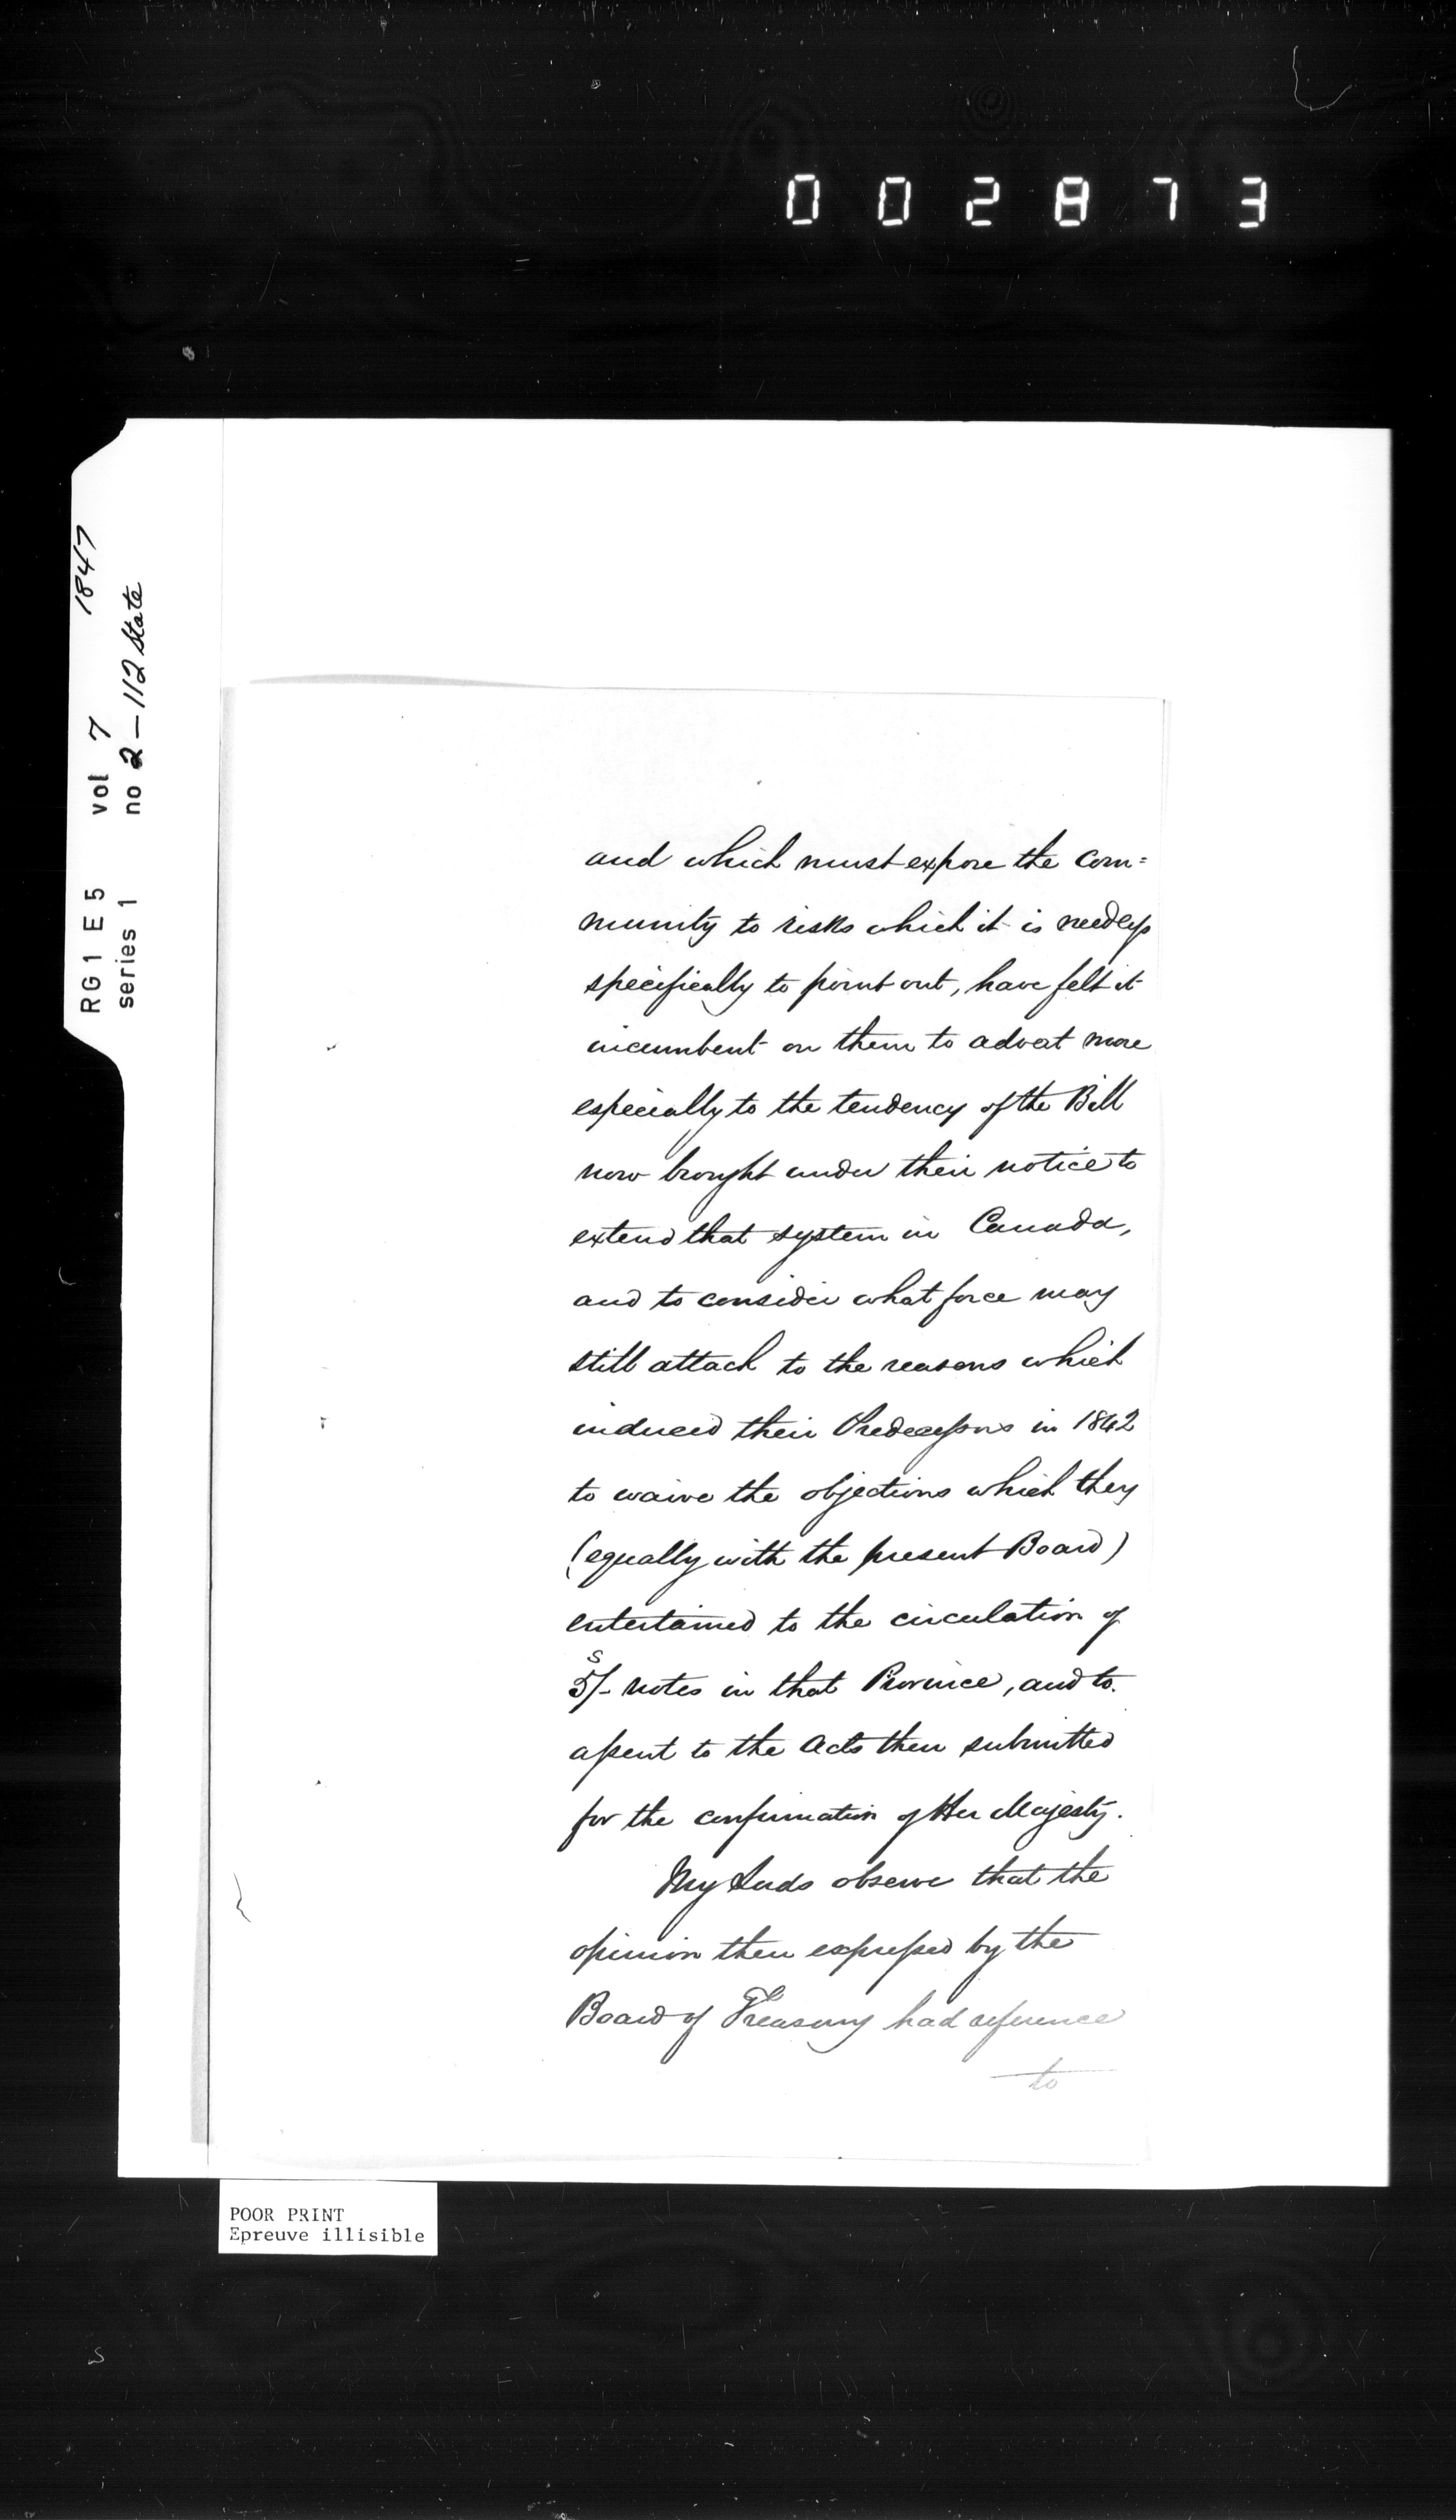 002873
RG1 E5 vol 7 1847
series 1 no 2-112 State
and which must expose the com=
munity to risks which it is needless
specifically to point out, have felt it
incumbent on them to advert more
especially to the tendency of the Bill
now brought under their notice to
extend that system in Canada,
and to consider what force may
still attach to the reasons which
induced their Predecessors in 1842
to waive the objections which they
(equally with the present Board)
entertained to the circulation of
5/- notes in that Province, and to
assent to the Acts then submitted
for the confirmation of Her Majesty.
My Lords observe that the
opinion then expressed by the
Board of Treasury had reference
to
POOR PRINT
Epreuve illisible